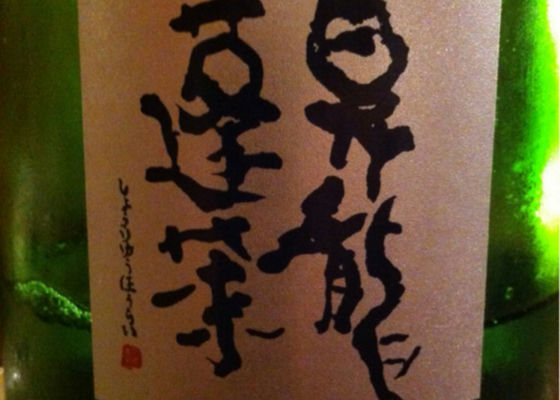 昇龍
蓬莱